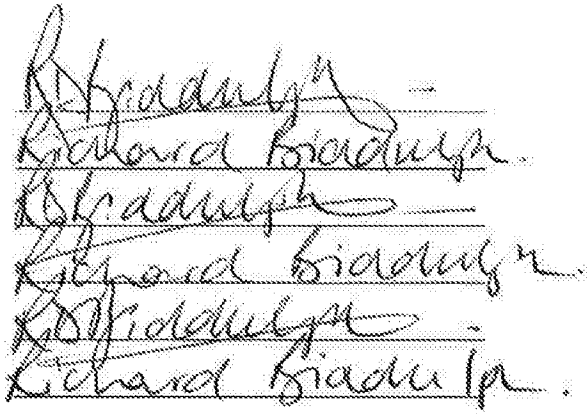 RDBiddulph -
Richard Biddulph.
RDBiddulph -
Richard Biddulph.
RDBiddulph -
Richard Biddulph.